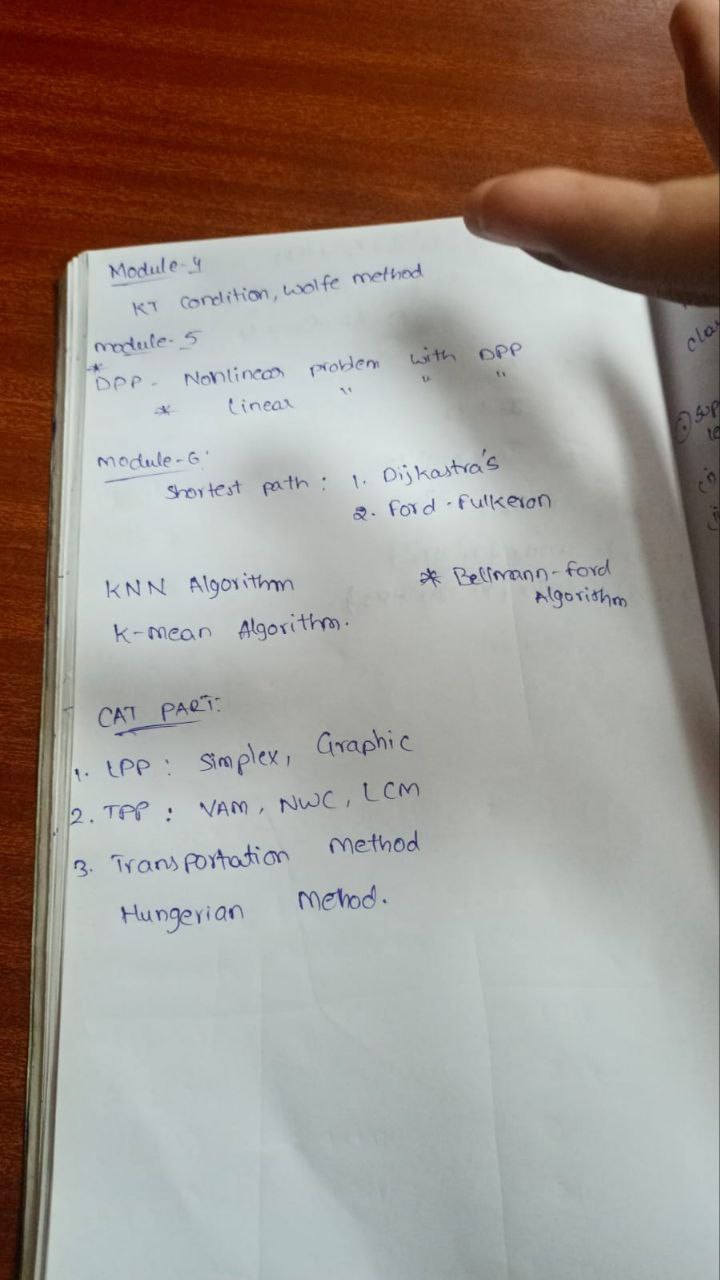 Module-4
KT Condition, Wolfe method
module-5
* DPP - Nonlinear problem with DPP
* linear " " "
module-6:
Shortest path : 1. Dijkastra's
2. Ford-Fulkeron
KNN Algorithm
* Bellmann-ford
Algorithm
K-mean Algorithm.
CAT PART:
1. LPP : Simplex, Graphic
2. TPP : VAM, NWC, LCM
3. Transportation Method
Hungerian Mehod.